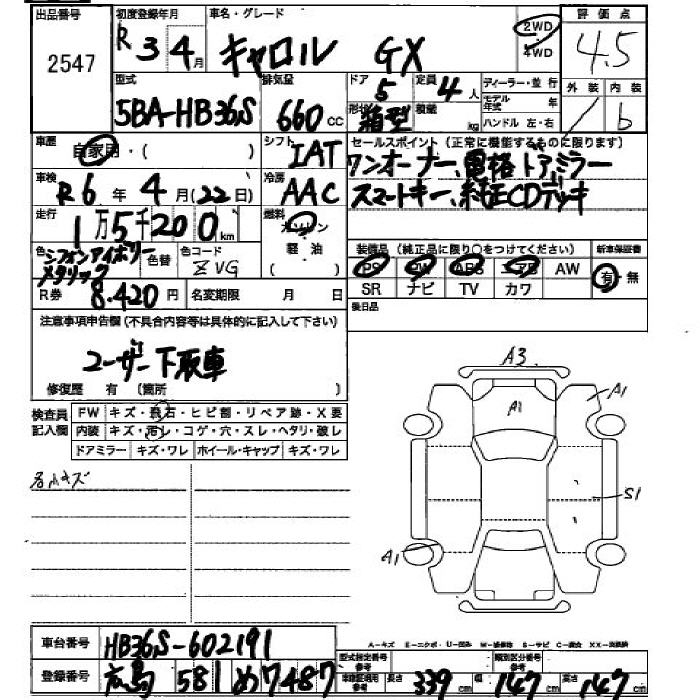 出品番号 初度登録年月 車名・グレード 評価点
2547 R 3年 4月 キャロル GX 2WD 4WD 4.5
型式 排気量 ドア 定員 ディーラー・並行 外装 内装
5BA-HB36S 660cc 5 4人 モデル年式 年
形状 箱型 積載 kg ハンドル 左・右 b
車歴 自家用・( ) シフト IAT セールスポイント(正常に機能するものに限ります)
ワンオーナー、電格ドアミラー
車検 R6年4月(22日) 冷房 AAC スマートキー、純正CDデッキ
走行 1万5千200km 燃料 ガソリン 軽油 ( )
装備品(純正品に限り○をつけてください) 新車保証書
色 シフォンアイボリーメタリック 色替 色コード ZVG
PS PW ABS エアB AW 有・無
R券 8.420円 名変期限 月 日 SR ナビ TV カワ
注意事項申告欄(不具合内容等は具体的に記入して下さい) 後日品
ユーザー下取車
修復歴 有 (箇所 )
A3
A1 A1
検査員記入欄 FW キズ・飛石・ヒビ割・リペア跡・X要
内装 キズ・汚レ・コゲ・穴・スレ・ヘタリ・破レ
ドアミラー キズ・ワレ ホイール・キャップ キズ・ワレ
S1
A1
車台番号 HB36S-602191
A-キズ E-エクボ U-凹み W-補修跡 S-サビ C-腐食 XX-交換済
登録番号 広島 581 め7487 型式指定番号 参考 類別区分番号 参考
車庫証明用 参考 長さ 339cm 幅 147cm 高さ 147cm